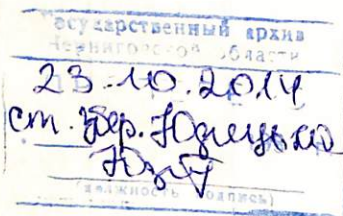 Государственный архив
Черниговской области
23.10.2014
ст. збер.
(должность подпись)